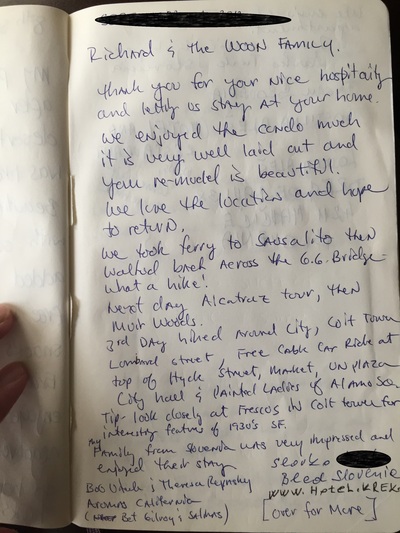 Richard & The WOON FAMILY.
Thank you for your nice hospitality
and letting us stay at your home.
We enjoyed the condo much
it is very well laid out and
your re-model is beautiful.
We love the location and hope
to return.
We took ferry to Sausalito then
walked back across the G.G. Bridge-
What a hike!
Next day Alcatraz tour, then
Muir Woods.
3rd Day hiked around City, Coit Tower
Lombard street, Free Cable Car Ride at
top of Hyde Street, Market, UN plaza
City hall & Painted Ladies of Alamo Sq.
Tip- look closely at Frescos in Coit tower for
interesting features of 1930's SF.
My
Family from Slovenia was very impressed and
enjoyed their stay
Slavko
Bled Slovenie
Bob & Theresa
www.Hotel.KREK
Aromas California
( Bet Gilroy & Salinas)
[over for More]